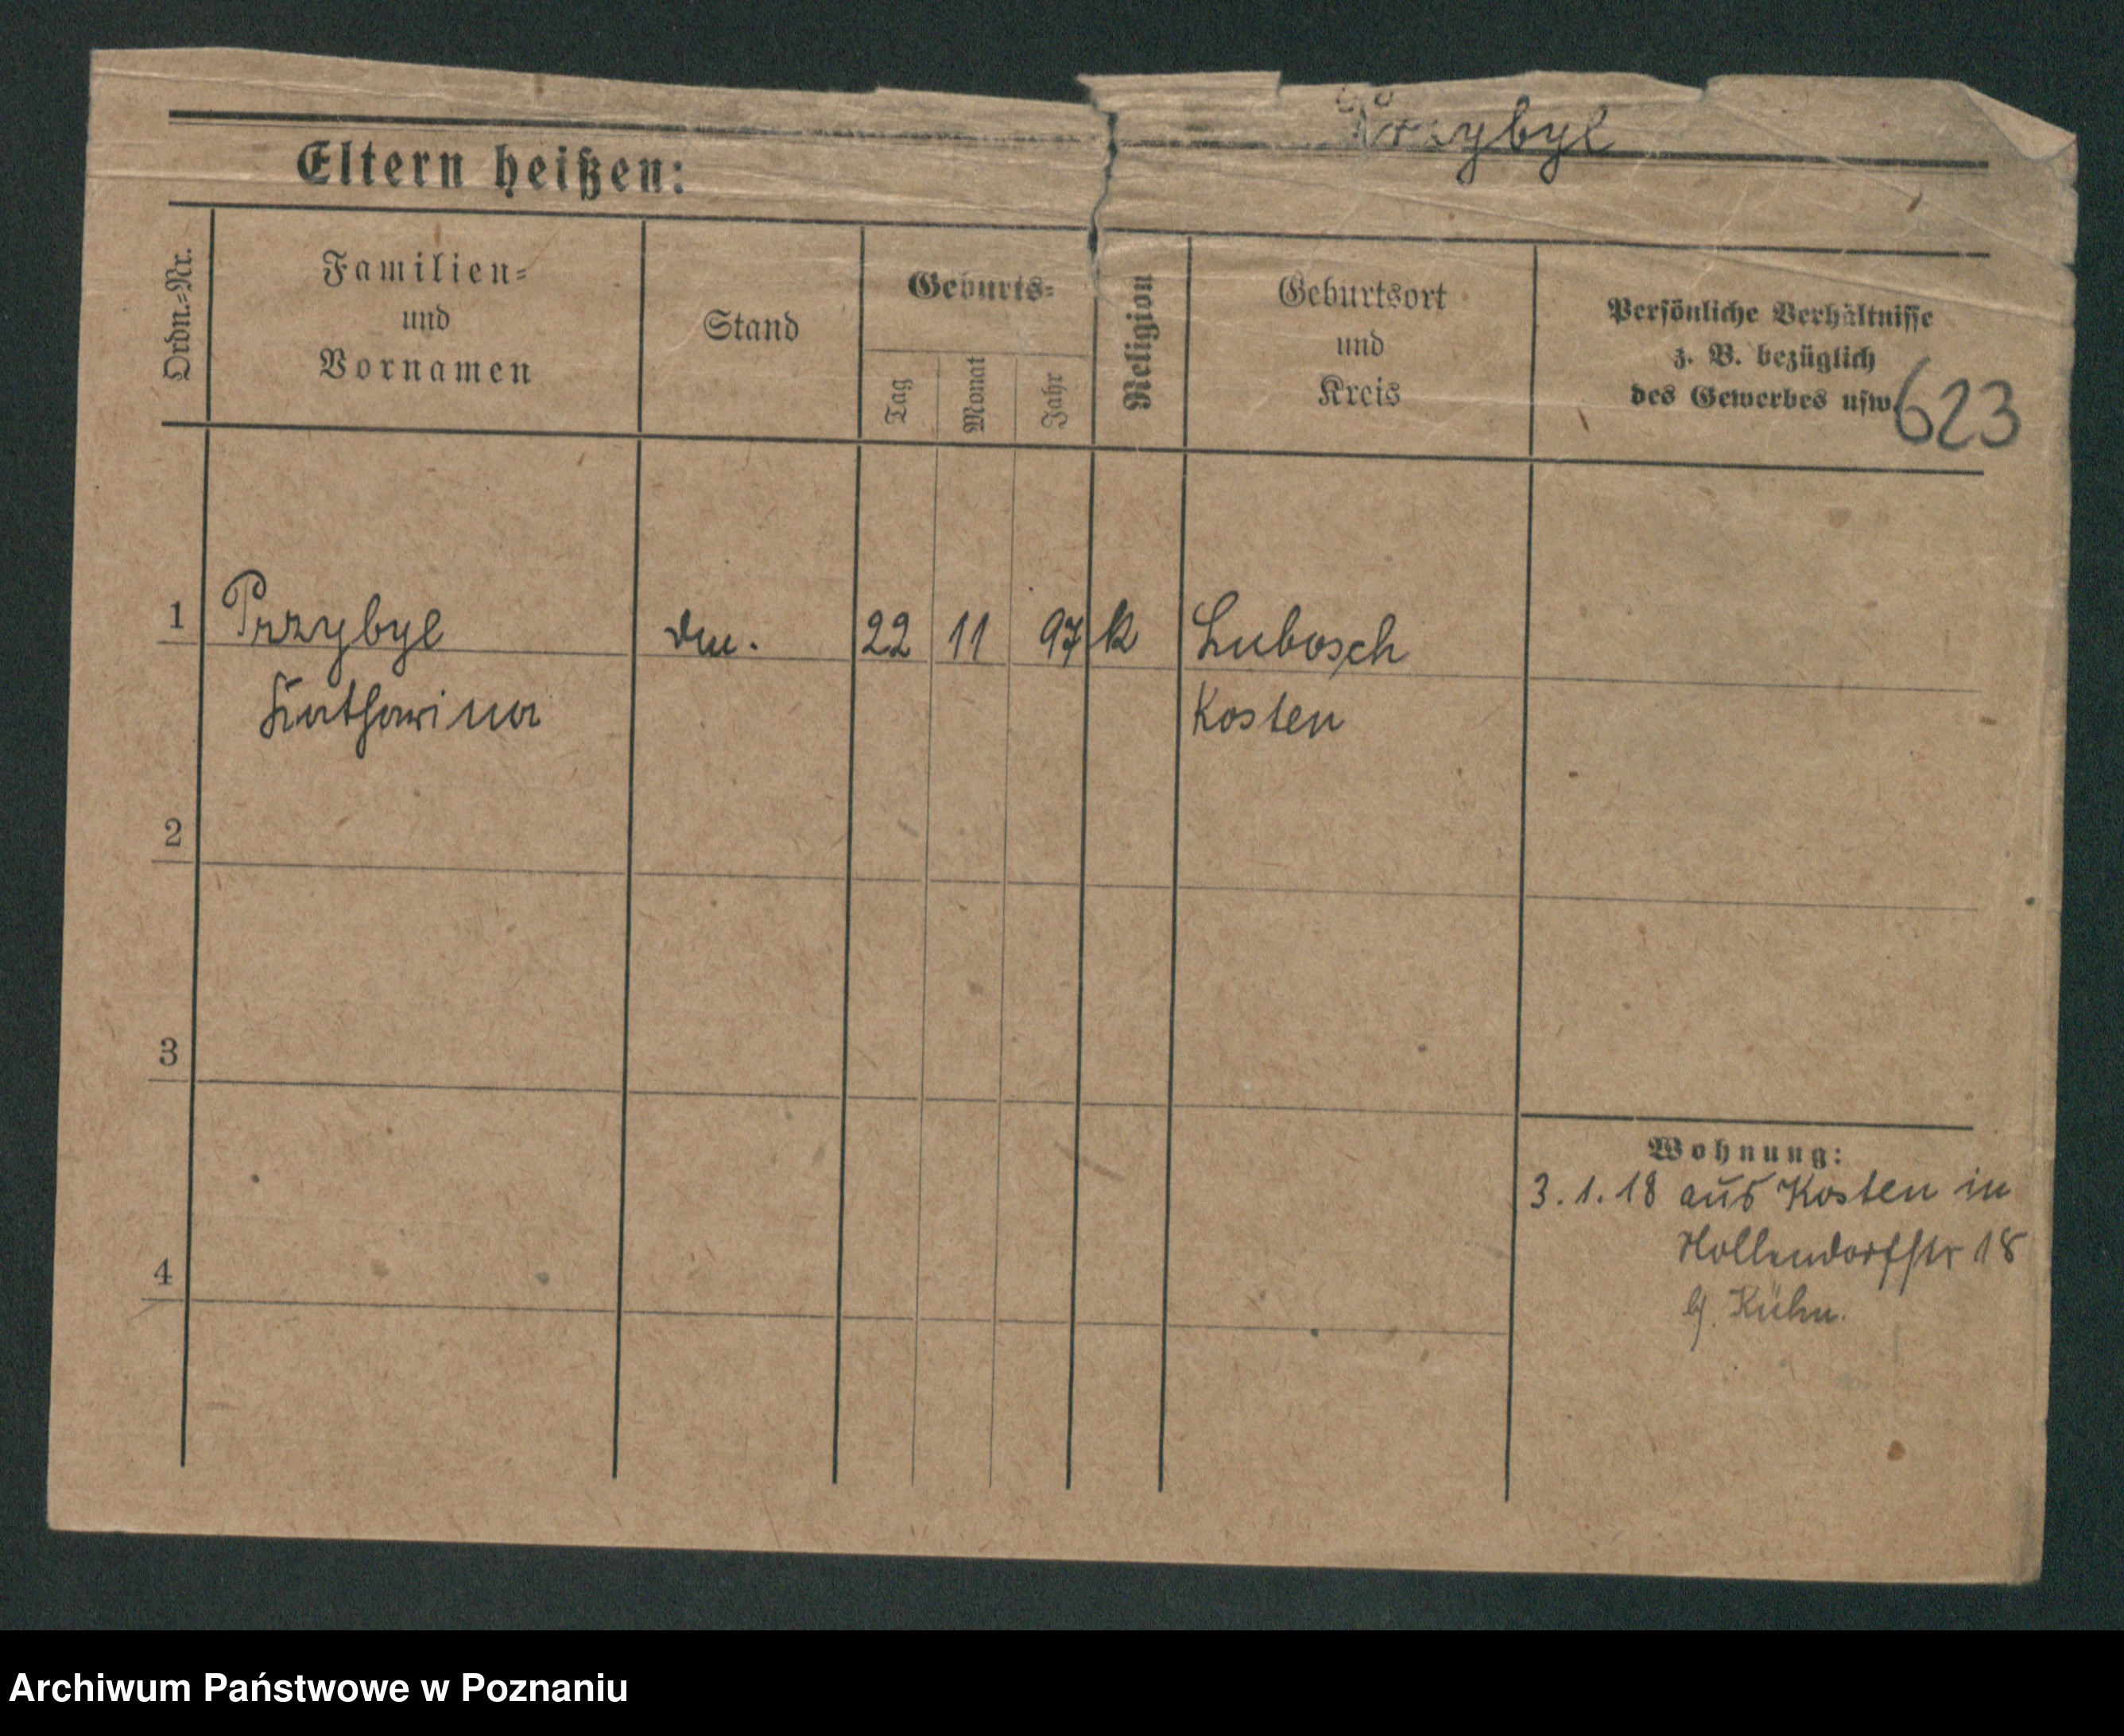 Przybyl
Eltern heißen:
Ordn.=Nr.
Familien=
und
Vornamen
Stand
Geburts=
Tag
Monat
Jahr
Religion
Geburtsort
und
Kreis
Persönliche Verhältnisse
z. B. bezüglich
des Gewerbes usw.
623
1 Przybyl 22 11 97 k Lubosch
Katharina Kosten
2
3
4
Wohnung:
3.1.18 aus Kosten in
Hollendorfstr 18
b/. Kühn.
Archiwum Państwowe w Poznaniu